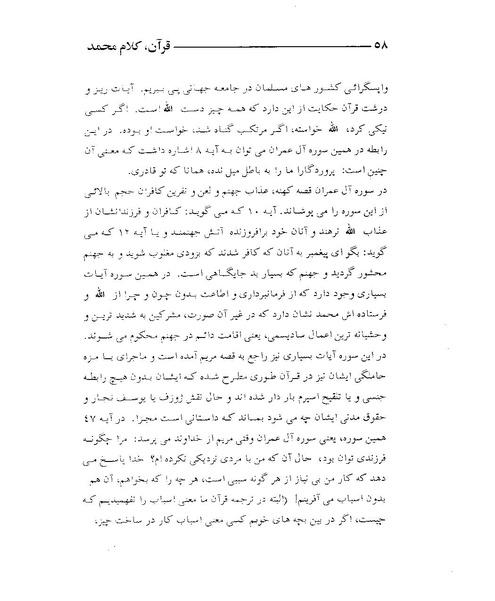 ۵۸ قرآن، کلام محمد
واپسگرائی کشور های مسلمان در جامعه جهانی پی ببریم. آیات ریز و
درشت قرآن حکایت از این دارد که همه چیز دست الله است. اگر کسی
نیکی کرد، الله خواسته، اگر مرتکب گناه شد، خواست او بوده. در این
رابطه در همین سوره آل عمران می توان به آیه ۸ اشاره داشت که معنی آن
چنین است: پروردگارا ما را به باطل میل نده، همانا که تو قادری.
در سوره آل عمران قصه کهنه، عذاب جهنم و لعن و نفرین کافران حجم بالائی
از این سوره را می پوشاند. آیه ۱۰ که می گوید: کافران و فرزندانشان از
عذاب الله نرهند و آنان خود برافروزنده آتش جهنمند و یا آیه ۱۲ که می
گوید: بگو ای پیغمبر به آنان که کافر شدند که بزودی مغلوب شوید و به جهنم
محشور گردید و جهنم که بسیار بد جایگاهی است. در همین سوره آیات
بسیاری وجود دارد که از فرمانبرداری و اطاعت بدون چون و چرا از الله و
فرستاده اش محمد نشان دارد که در غیر آن صورت، مشرکین به شدید ترین و
وحشیانه ترین اعمال سادیسمی، یعنی اقامت دائم در جهنم محکوم می شوند.
در این سوره آیات بسیاری نیز راجع به قصه مریم آمده است و ماجرای بامزه
حاملگی ایشان نیز در قرآن طوری مطرح شده که ایشان بدون هیچ رابطه
جنسی و یا تنقیح اسپرم بار دار شده اند و حال نقش ژوزف یا یوسف نجار و
حقوق مدنی ایشان چه می شود بماند که داستانی است مجزا. در آیه ۴۷
همین سوره، یعنی سوره آل عمران وقتی مریم از خداوند می پرسد: مرا چگونه
فرزندی توان بود، حال آن که من با مردی نزدیکی نکرده ام؟ خدا پاسخ می
دهد که کار من بی نیاز از هر گونه سببی است، هر چه را که بخواهم، آن هم
بدون اسباب می آفرینم! (البته در ترجمه قرآن ما معنی اسباب را نفهمیدیم که
چیست، اگر در بین بچه های خودم کسی معنی اسباب کار در ساخت چیز،